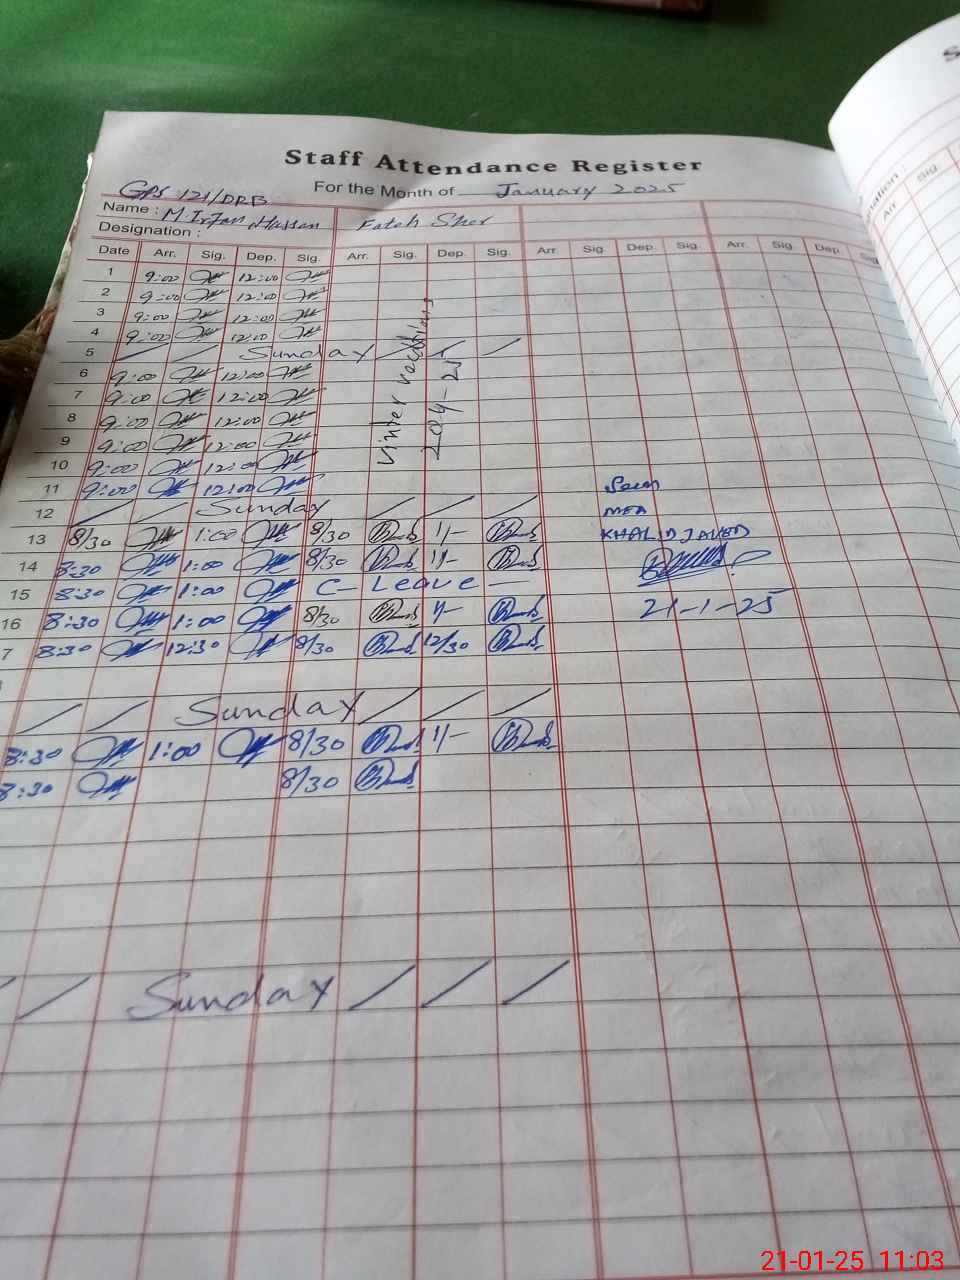 Staff Attendance Register
GPS 121/DRB For the Month of January 2025
Name : M. Irfan Hussan Fateh Sher
Designation :
Date Arr. Sig. Dep. Sig. Arr. Sig. Dep. Sig. Arr. Sig. Dep. Sig. Arr. Sig. Dep. Sig.
1 9:00 12:00
2 9:00 12:00
3 9:00 12:00
4 9:00 12:00
5 Sunday
6 9:00 12:00
7 9:00 12:00
8 9:00 12:00
9 9:00 12:00
10 9:00 12:00
11 9:00 12:00
Winter Vacations
2024-25
12 Sunday
13 8/30 1:00 8/30 1/-
14 8:30 1:00 8/30 1/-
15 8:30 1:00 C- Leave
16 8:30 1:00 8/30 1/-
7 8:30 12:30 8/30 12/30
Sunday
8:30 1:00 8/30 1/-
8:30 8/30
Sunday
Seen
MEA
KHALID JAVED
21-1-25
Arr. Sig.
21-01-25 11:03